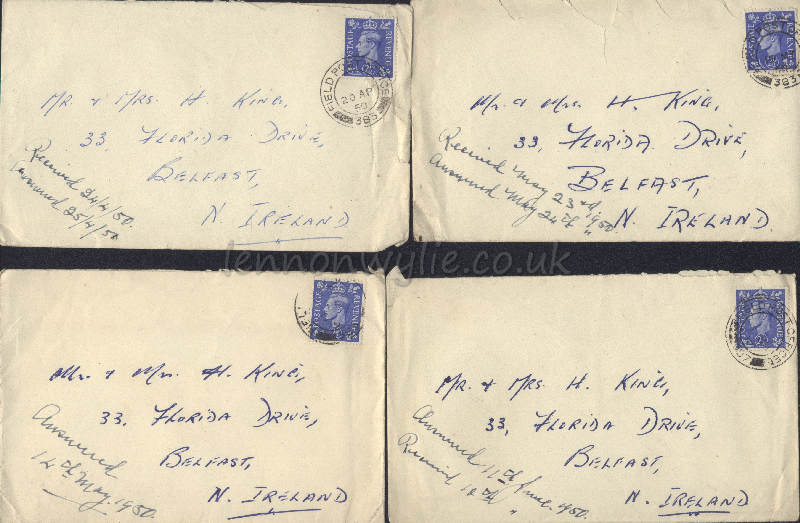 POSTAGE REVENUE
FIELD POST OFFICE
20 AP
50
383
Mr. & Mrs. H. King,
33, Florida Drive,
Belfast,
N. Ireland
Received 24/4/50.
Answered 25/4/50
POSTAGE REVENUE
383
Mr. & Mrs. H. King,
33, Florida Drive,
Belfast,
N. Ireland.
Received May 23rd 1950.
Answered May 24th "
lennonwylie.co.uk
POSTAGE REVENUE
Mr. & Mrs. H. King,
33, Florida Drive,
Belfast,
N. Ireland
Answered
14th May 1950.
Mr. & Mrs. H. King,
33, Florida Drive,
Belfast,
N. Ireland
Answered 11th June 1950.
Received 10th "